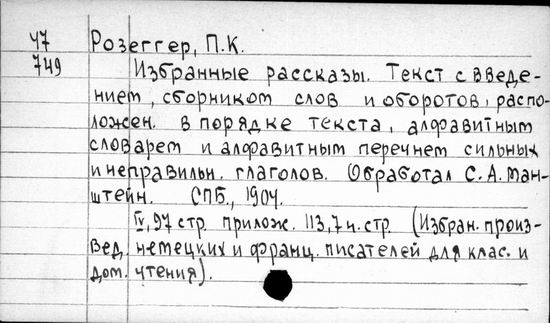 47 Розеггер, П.К.
749 Избранные рассказы. Текст с введе-
нием, сборником слов и оборотов, распо-
ложен. в порядке текста, алфавитным
словарем и алфавитным перечнем сильных
и неправильн. глаголов. Обработал С.А. Ман-
штейн. СПБ., 1904.
IV, 97 стр. прилож. 113, 7 н. стр (Избран. произ-
вед. немецких и франц. писателей для клас. и
дом. чтения).